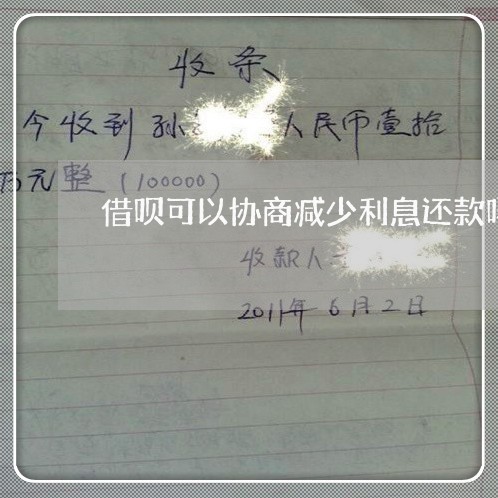 收条
今收到孙 人民币壹拾
万元整（100000）
借呗可以协商减少利息还款
收款人
2011年6月2日